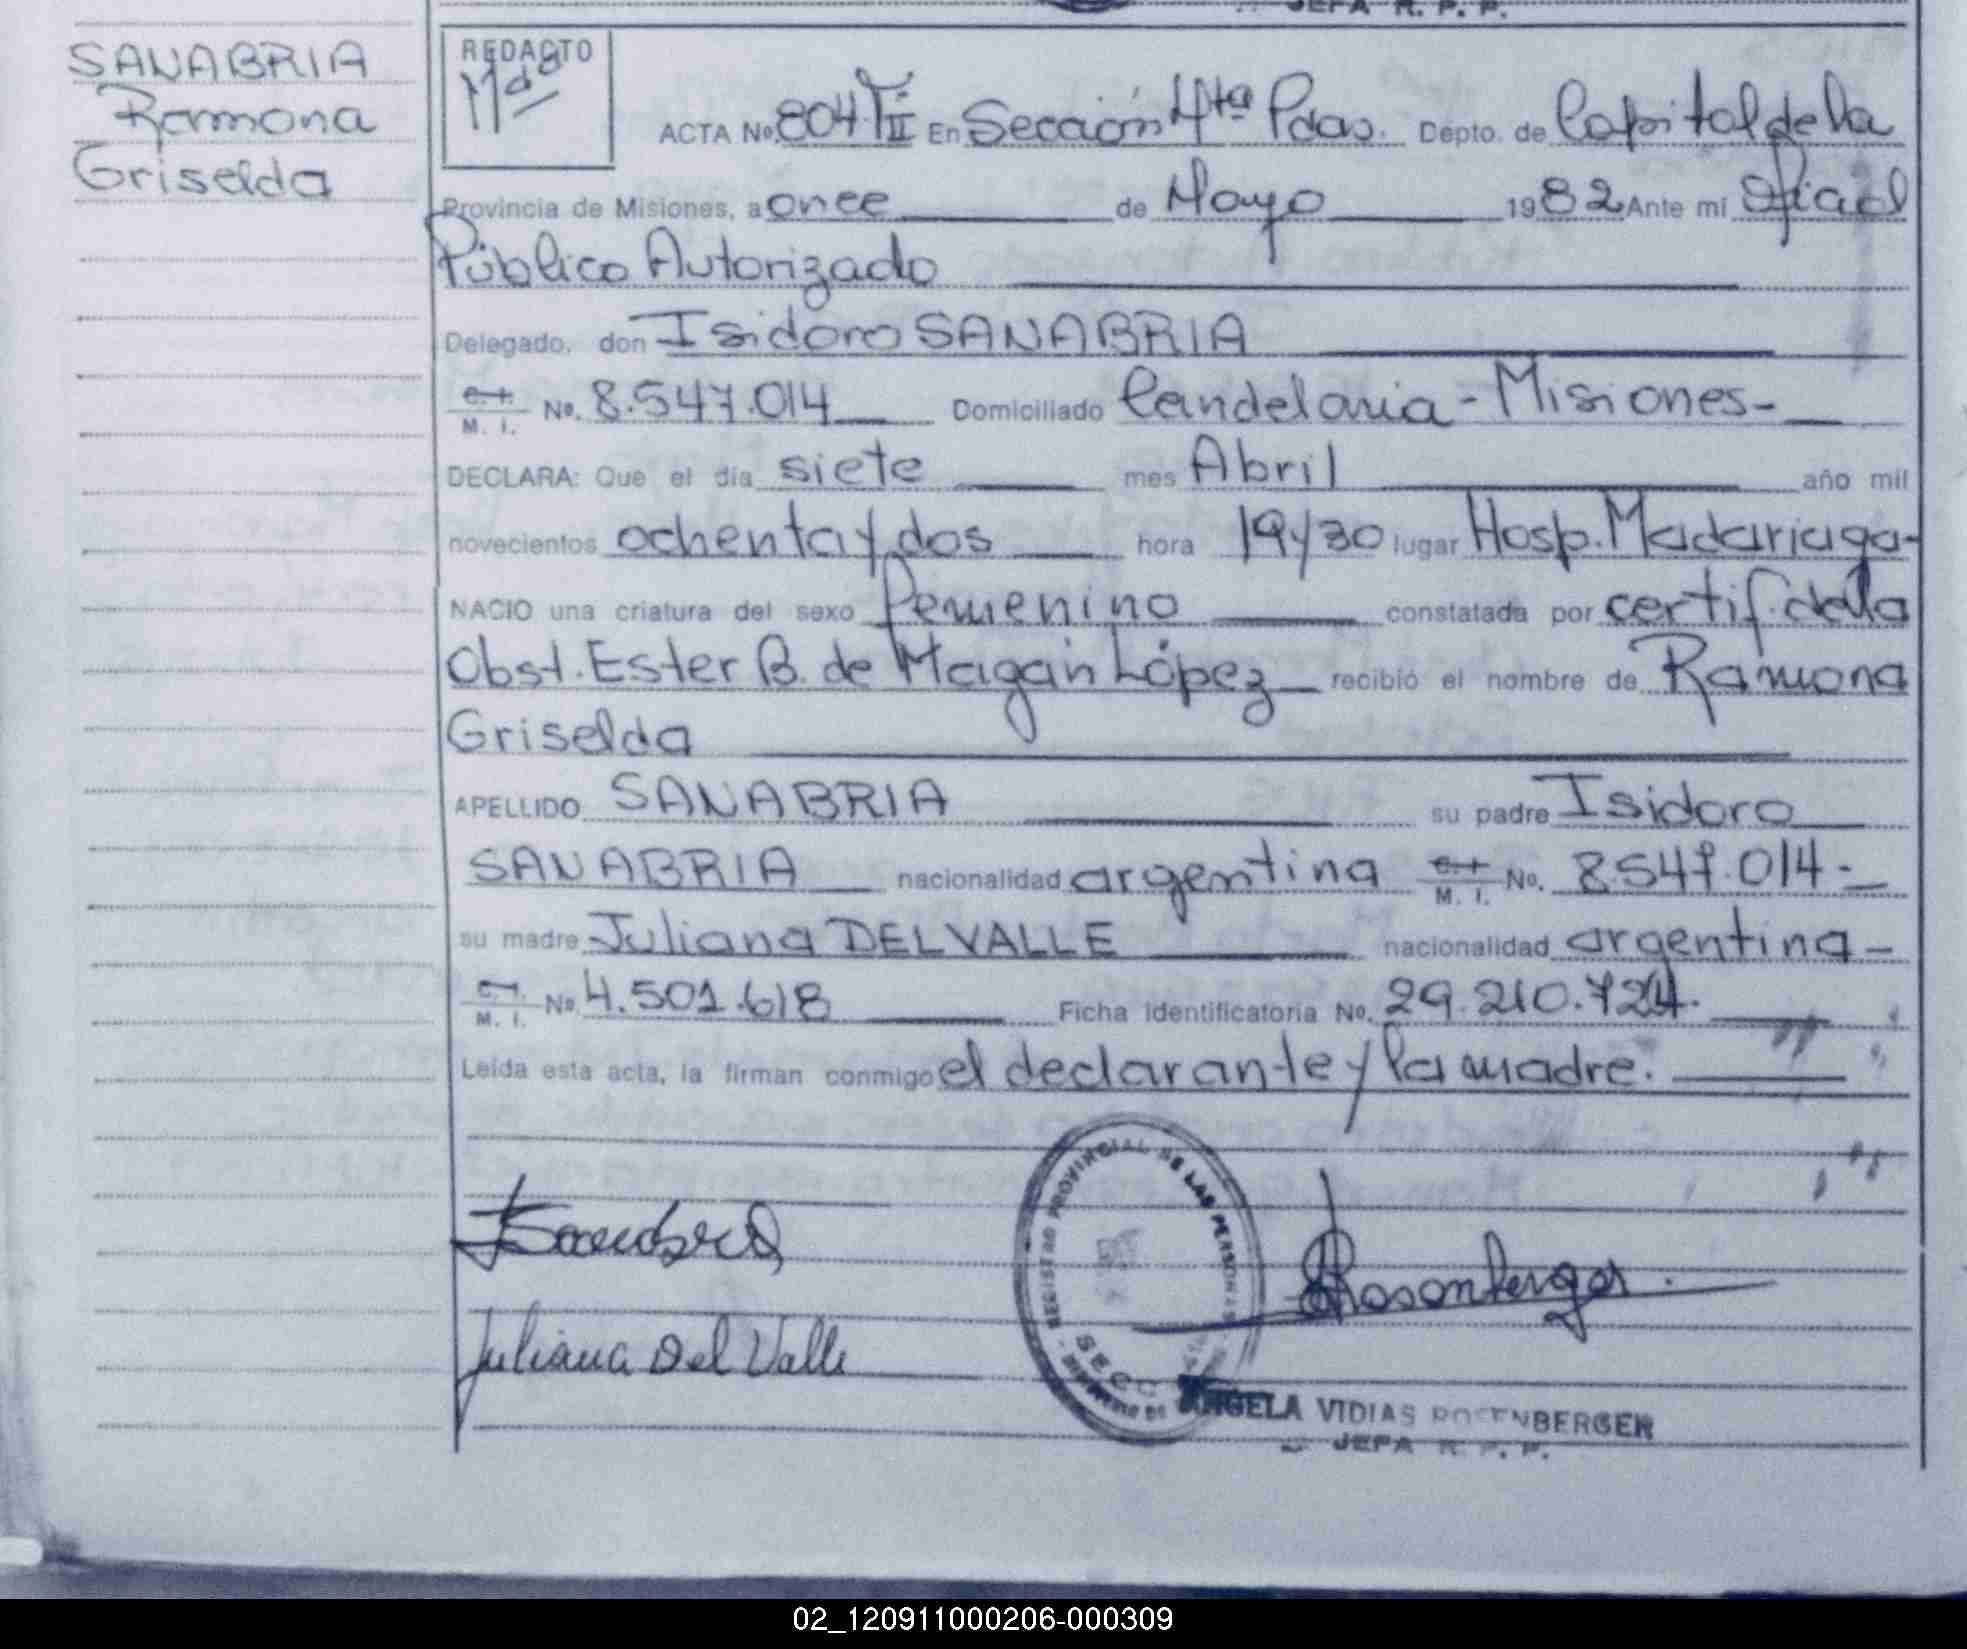 JEFA R. P. P.
SANABRIA
Ramona
Griselda
REDACTO
ACTA No. 804 T II En Sección 4ta Pdas. Depto. de Capital de la
Provincia de Misiones, a once de Mayo 1982 Ante mi Oficial
Público Autorizado
Delegado, don Isidoro SANABRIA
M. I. No. 8.547.014 Domiciliado Candelaria - Misiones-
DECLARA: Que el día siete mes Abril año mil
novecientos ochenta y dos hora 19y30 lugar Hosp. Madariaga-
NACIO una criatura del sexo femenino constatada por certif. de la
Obst. Ester B. de Magán López recibió el nombre de Ramona
Griselda
APELLIDO SANABRIA su padre Isidoro
SANABRIA nacionalidad argentina M. I. No. 8.547.014-
su madre Juliana DELVALLE nacionalidad argentina-
M. I. No. 4.501.618 Ficha Identificatoria No. 29.210.724.
Leída esta acta, la firman conmigo el declarante y la madre.
REGISTRO PROVINCIAL DE LAS PERSONAS
SECC
Juliana Del Valle
Rosenberger
ANGELA VIDIAS ROSENBERGER
JEFA R. P. P.
02_120911000206-000309